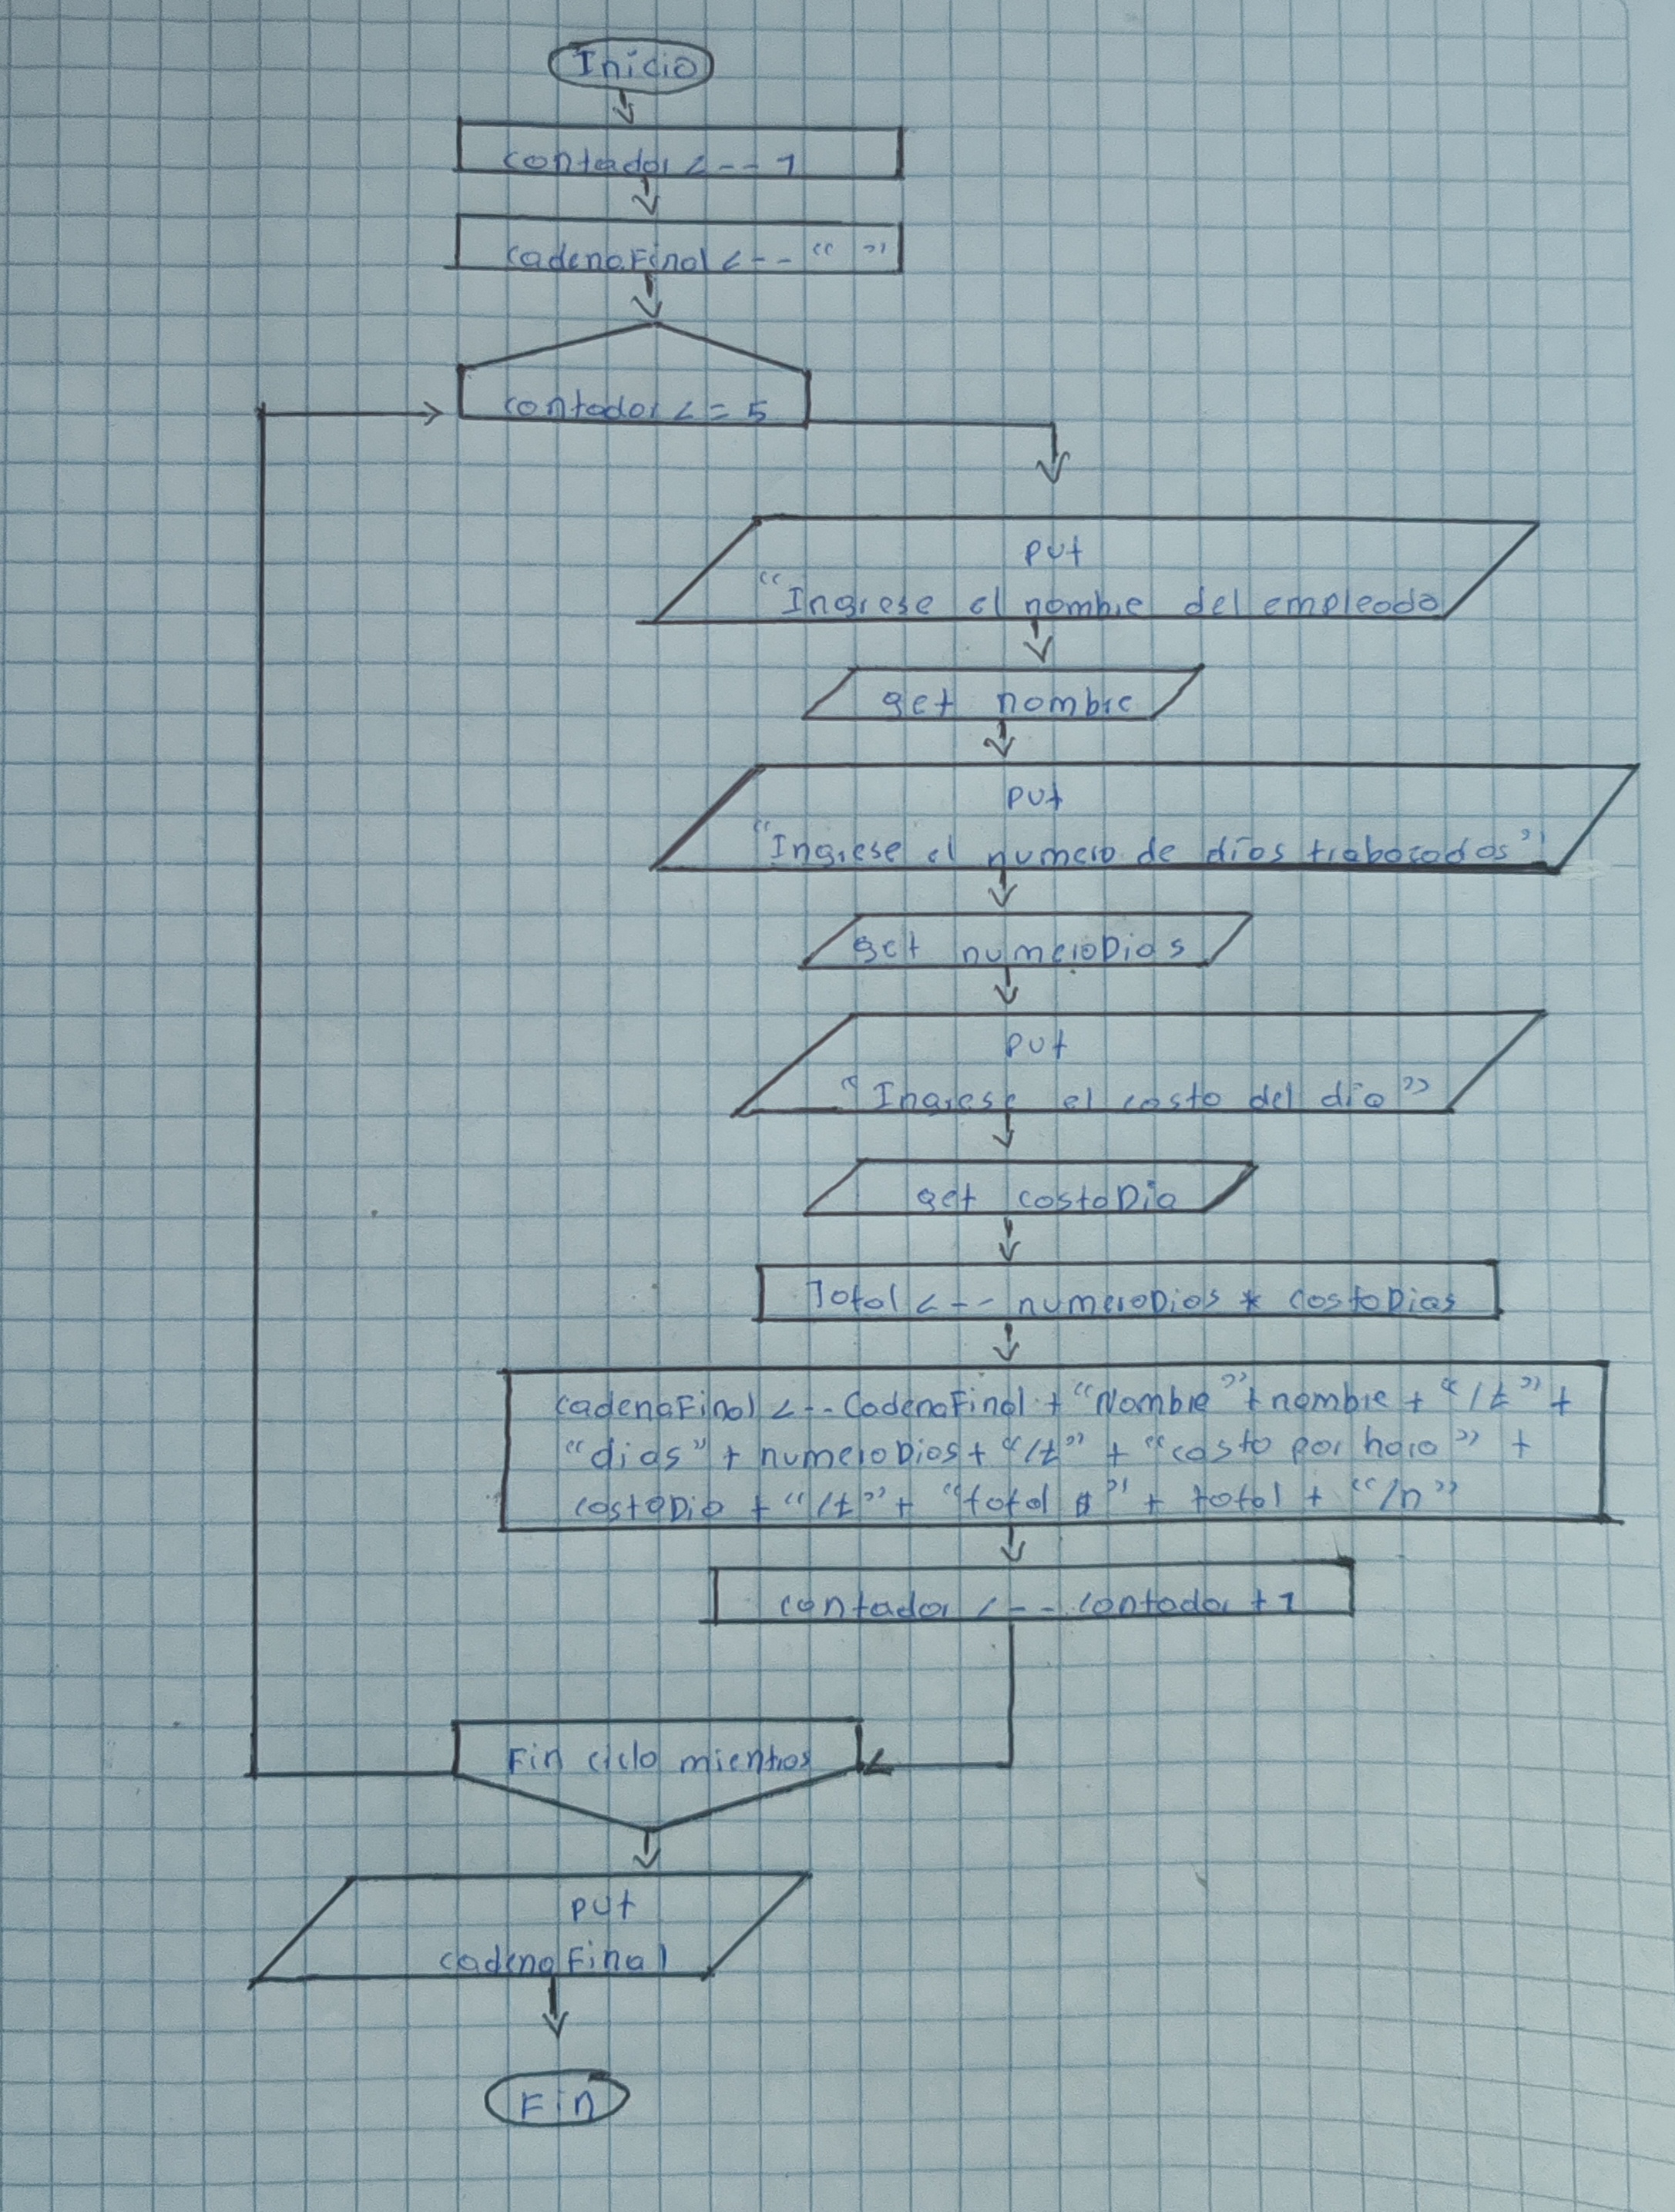 Inicio
contador <-- 1
cadenaFinal <-- “ ”
contador <= 5
put
“Ingrese el nombre del empleado
get nombre
put
“Ingrese el numero de días trabacados”
get numeroDias
put
“Ingrese el costo del día”
get costoDia
Total <-- numeroDias * costoDias
cadenaFinal <-- CadenaFinal + “Nombre” + nombre + “/t” +
“dias” + numeroDias + “/t” + “costo por hora” +
costoDia + “/t” + “total $” + total + “/n”
contador <-- contador + 1
Fin ciclo mientras
put
cadenaFinal
Fin